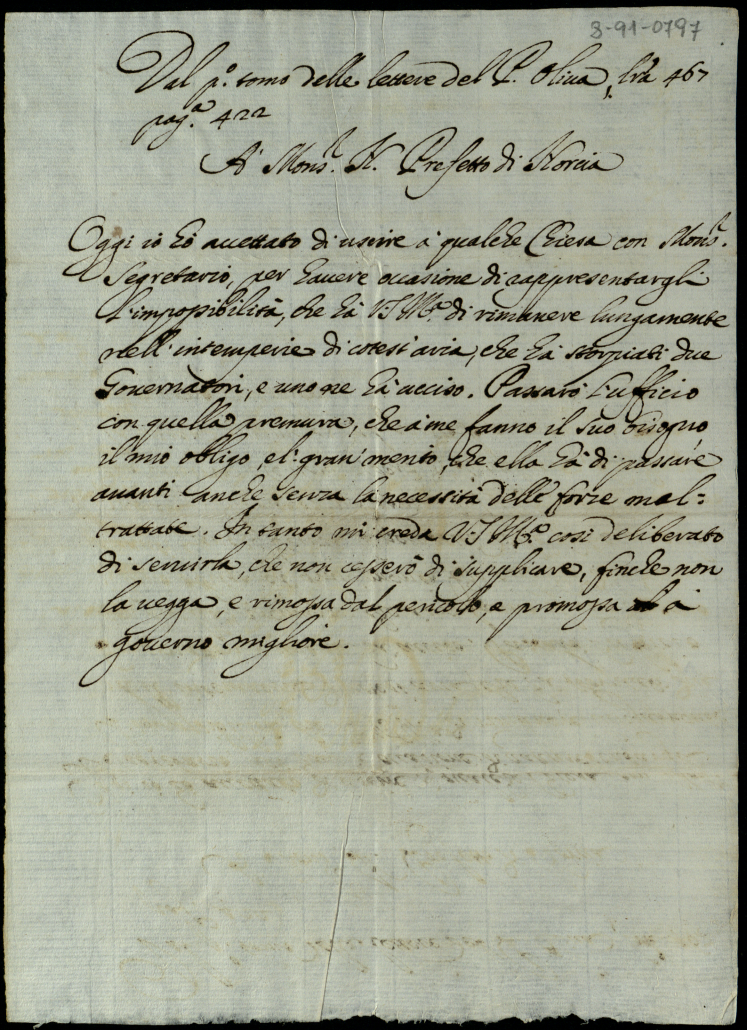 3-91-0797
Dal p.º tomo delle lettere del P. Oliva, lrã 467
pag.ª 422
A' Mons.r N. Prefetto di Norcia
Oggi io hò accettato di uscire à qualche Chiesa con Mons.r
Segretario, per hauere occasione di rappresentargli
l'impossibilità, che hà V.S. Ill.ma di rimanere lungamente
nell'intemperie di cotest'aria, che hà storpiati due
Gouernatori, e uno ne hà ucciso. Passarò l'ufficio
con quella premura, che à me fanno il suo bisogno,
il mio obligo, e'l gran merito, che ella hà di passare
auanti anche senza la necessità delle forze mal=
trattate. In tanto mi creda V.S. Ill.ma così deliberato
di seruirla, che non cesserò di supplicare, finche non
la uegga, e rimossa dal pericolo, e promossa à
gouerno migliore.